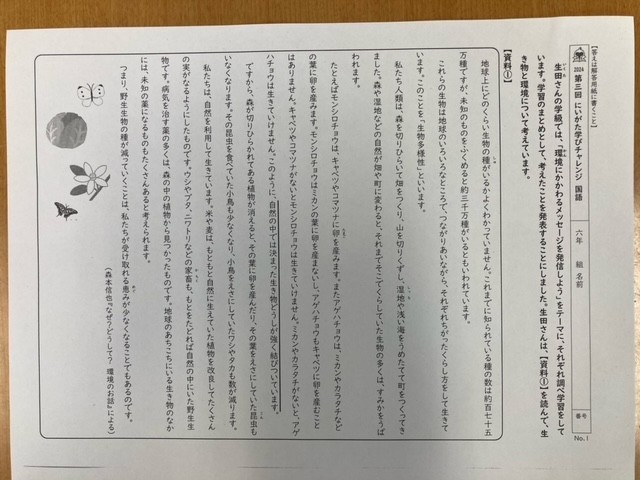 【答えは解答用紙に書くこと】
2024 第三回 にいがた学びチャレンジ 国語
六年 組 名前
番号
No.1
生田さんの学級では、「環境にかかわるメッセージを発信しよう」をテーマに、それぞれ調べ学習をして
います。学習のまとめとして、考えたことを発表することにしました。生田さんは、【資料①】を読んで、生
き物と環境について考えています。
【資料①】
地球上にどのくらい生物の種がいるかよくわかっていません。これまでに知られている種の数は約百七十五
万種ですが、未知のものをふくめると約三千万種がいるともいわれています。
これらの生物は地球のいろいろなところで、つながりあいながら、それぞれちがったくらし方をして生きて
います。このことを、「生物多様性」といいます。
私たち人類は、森を切りひらいて畑をつくり、山を切りくずし、湿地や浅い海をうめたてて町をつくってき
ました。森や湿地などの自然が畑や町に変わると、それまでそこでくらしていた生物の多くは、すみかをうば
われます。
たとえばモンシロチョウは、キャベツやコマツナに卵を産みます。またアゲハチョウは、ミカンやカラタチなど
の葉に卵を産みます。モンシロチョウはミカンの葉に卵を産まないし、アゲハチョウもキャベツに卵を産むこと
はありません。キャベツやコマツナがないとモンシロチョウは生きていけません。ミカンやカラタチがないと、アゲ
ハチョウは生きていけません。このように、自然の中では決まった生き物どうしが強く結びついています。
ですから、森が切りひらかれてある植物が消えると、その葉に卵を産んだり、その葉をえさにしていた昆虫も
いなくなります。その昆虫を食べていた小鳥も少なくなり、小鳥をえさにしていたワシやタカも数が減ります。
私たちは、自然を利用して生きています。米や麦は、もともと自然に生えていた植物を改良してたくさん
の実がなるようにしたものです。ウシやブタ、ニワトリなどの家畜も、もとをたどれば自然の中にいた野生生
物です。病気を治す薬の多くは、森の中の植物から見つかったものです。地球のあちこちにいる生き物のなか
には、未知の薬になるものもたくさんあると考えられます。
つまり、野生生物の種が減っていくことは、私たちが受け取れる恵みが少なくなることでもあるのです。
(森本信也『なぜ?どうして? 環境のお話』による)